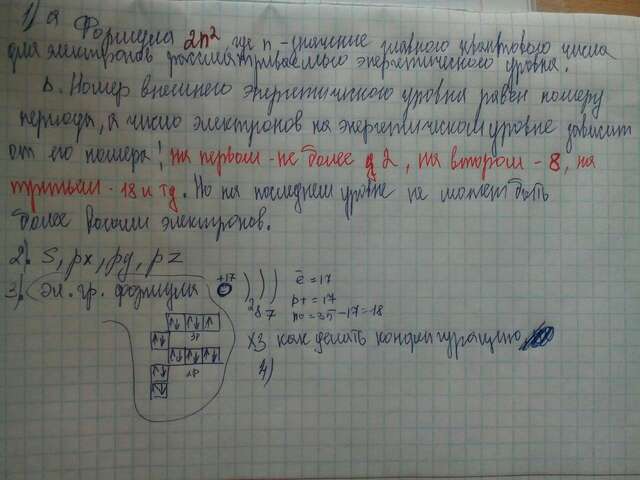 1) a Формула 2n² где n - значение главного квантового числа
для электронов рассматриваемого энергетического уровня.
b. Номер внешнего энергетического уровня равен номеру
периода, а число электронов на энергетическом уровне зависит
от его номера! на первом - не более 2, на втором - 8, на
третьем - 18 и тд. Но на последнем уровне не может быть
более восьми электронов.
2). S, px, py, pz
3). эл. гр. формула +17 ) ) ) ē = 17
2 8 7 p+ = 17
no = 35 - 17 = 18
3p
хз как делать конфигурацию
4)